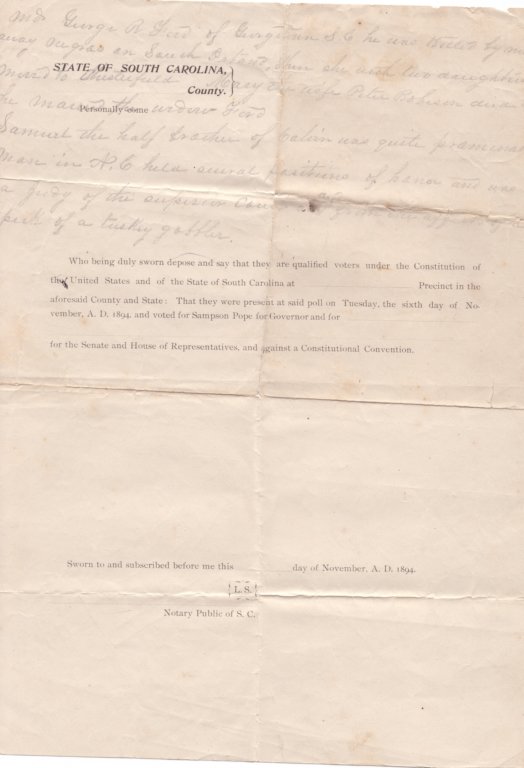 Md George R Ford of Georgetown S.C he was killed by
away negros on South Island, Sam she with two daughters
moved to Chesterfield Mary wife Peter Robison and
STATE OF SOUTH CAROLINA,
County.
he married the widow Ford
Personally come
Samuel the half brother of Calvin was quite prominent
man in N.C held several positions of honor and was
a Judg of the superior Court
of a turkey gobbler.
Who being duly sworn depose and say that they are qualified voters under the Constitution of
the United States and of the State of South Carolina at Precinct in the
aforesaid County and State: That they were present at said poll on Tuesday, the sixth day of No-
vember, A. D. 1894, and voted for Sampson Pope for Governor and for
for the Senate and House of Representatives, and against a Constitutional Convention.
Sworn to and subscribed before me this day of November, A. D. 1894.
L. S.
Notary Public of S. C.